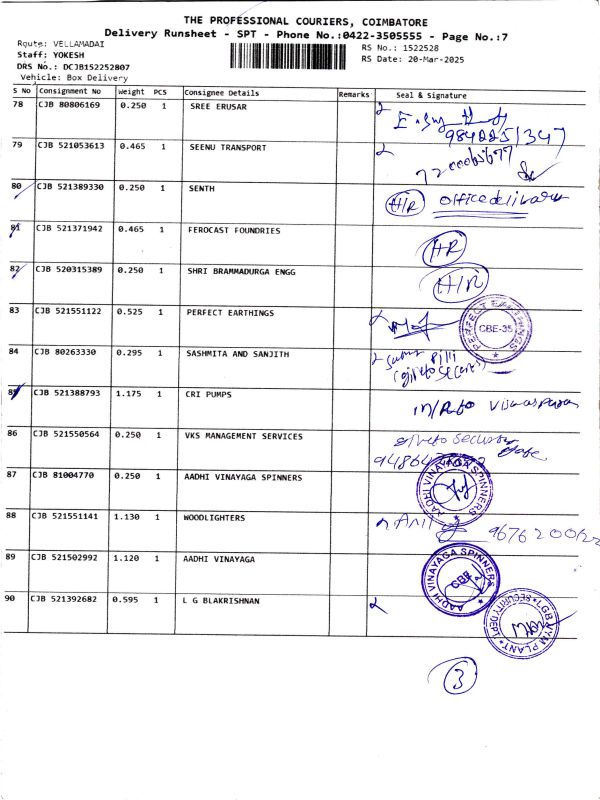 THE PROFESSIONAL COURIERS, COIMBATORE
Delivery Runsheet - SPT - Phone No.:0422-3505555 - Page No.:7
Route: VELLAMADAI
RS No.: 1522528
Staff: YOKESH
RS Date: 20-Mar-2025
DRS No.: DCJB152252807
Vehicle: Box Delivery
S No Consignment No Weight PCS Consignee Details Remarks Seal & Signature
78 CJB 80806169 0.250 1 SREE ERUSAR
79 CJB 521053613 0.465 1 SEENU TRANSPORT
80 CJB 521389330 0.250 1 SENTH H/R office delivery
81 CJB 521371942 0.465 1 FEROCAST FOUNDRIES H/R
82 CJB 520315389 0.250 1 SHRI BRAMMADURGA ENGG H/R
83 CJB 521551122 0.525 1 PERFECT EARTHINGS PERFECT EARTHINGS CBE-35
84 CJB 80263330 0.295 1 SASHMITA AND SANJITH
85 CJB 521388793 1.175 1 CRI PUMPS
86 CJB 521550564 0.250 1 VKS MANAGEMENT SERVICES
87 CJB 81004770 0.250 1 AADHI VINAYAGA SPINNERS AADHI VINAYAGA SPINNERS
88 CJB 521551141 1.130 1 WOODLIGHTERS
89 CJB 521502992 1.120 1 AADHI VINAYAGA AADHI VINAYAGA SPINNERS CBE
90 CJB 521392682 0.595 1 L G BLAKRISHNAN PLANT SECURITY DEPT
3